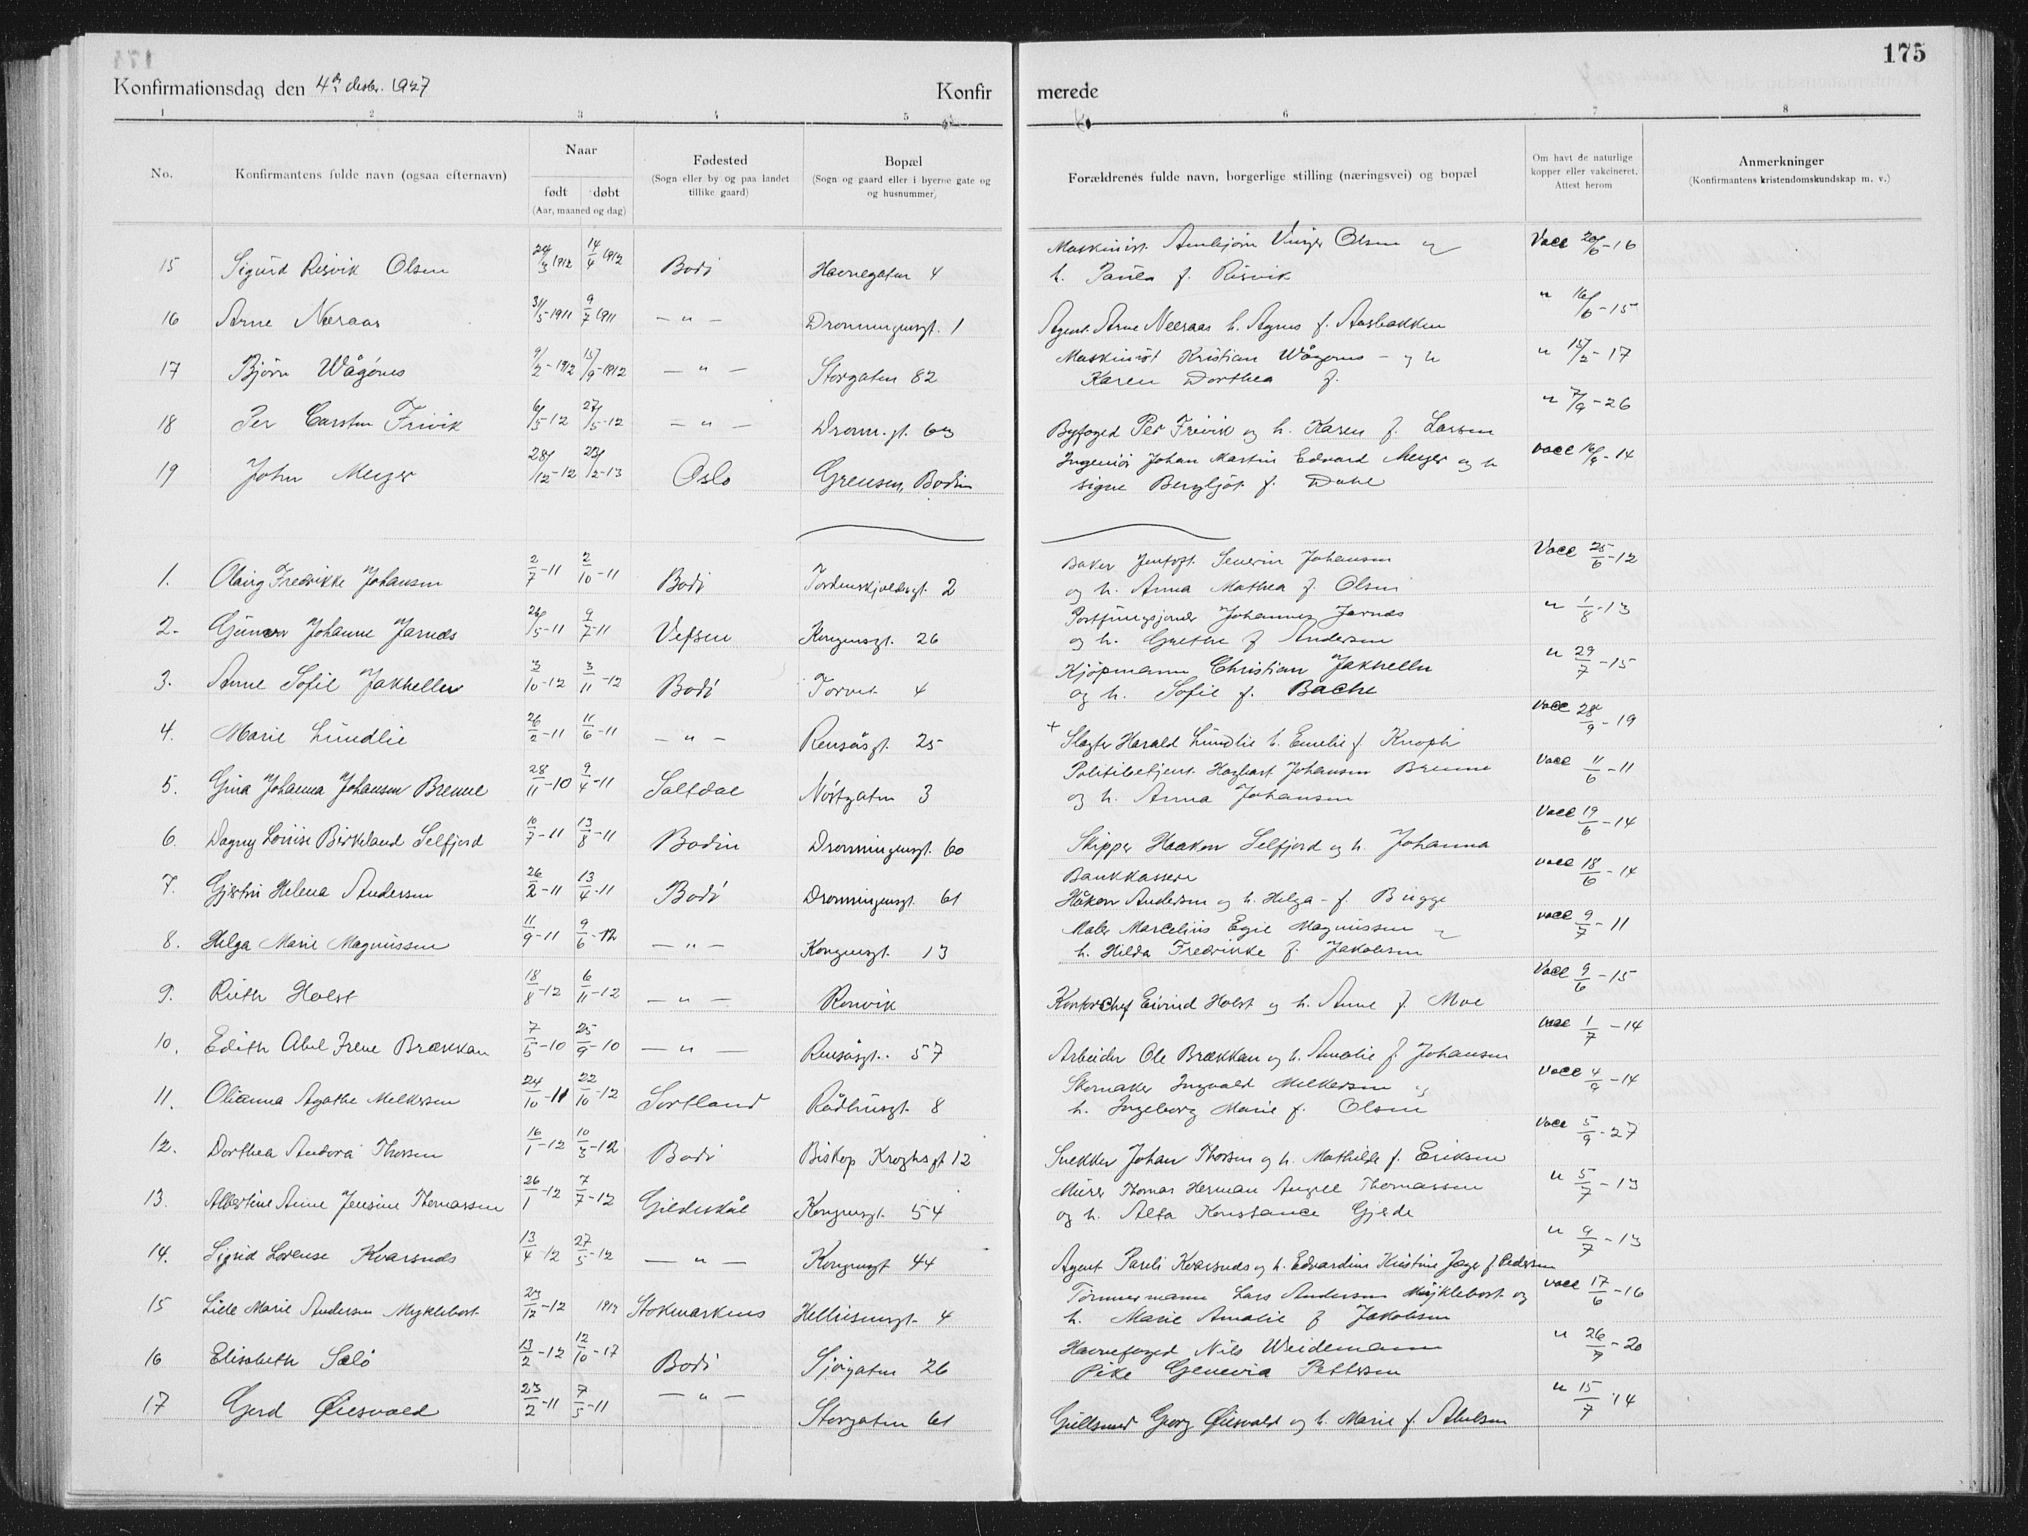 175
Konfirmationsdag den 4de desbr. 1927
Konfir
merede
1 2 3 4 5 6 7 8
No.
Konfirmantens fulde navn (ogsaa efternavn)
Naar
født døbt
(Aar, maaned og dag)
Fødested
(Sogn eller by og paa landet
tillike gaard)
Bopæl
(Sogn og gaard eller i byerne gate og
og husnummer)
Forældrenes fulde navn, borgerlige stilling (næringsvei) og bopæl
Om havt de naturlige
kopper eller vakcineret.
Attest herom
Anmerkninger
(Konfirmantens kristendomskundskap m. v.)
15 Sigurd Risvik Olsen 24/3 1912 14/4 1912 Bodø Havnegaten 4 Maskinist Arnbjørn Olsen og Vacc 20/6-16
h. Paula f. Risvik
16 Arne Næraas 31/5-1911 9/7 1911 — " — Dronningensgt. 1 Agent Arne Neeraas h. Agnes f. Aasbakken " 16/6-15
17 Bjørn Wågønes 9/2-1912 15/9-1912 — " — Storgaten 82 Maskinist Kristian Wågønes - og h " 15/2-17
Karen Dorthea f.
18 Per Carsten Frivik 6/5-12 27/5-12 — " — Dronn.gt. 63 Byfoged Per Frivik og h. Karen f. Larsen " 7/9-26
19 John Meyer 28/12-12 23/2-13 Oslo Grensen, Bodin Ingeniør Johan Martin Edvard Meyer og h vacc 16/9-14
Signe Bergljot f. Dahl
1. Olaug Fredrikke Johansen 2/7-11 2/10-11 Bodø Tordenskjoldsgt. 2 Baker Jentoft Severin Johansen Vacc 25/6-12
og h. Anna Mathea f. Olsen
2. Gunvor Johanne Jarnæs 26/5-11 9/7-11 Vefsen Kongensgt. 26 Johannes Jarnæs " 1/8-13
og h. Grethe f Andersen
3. Anne Sofie Jakhelln 3/10-12 3/11-12 Bodø Torvet 4 Kjøpmann Christian Jakhelln " 29/7-15
og h. Sofie f. Bache
4. Marie Lundlie 26/2-11 11/6-11 — " — Rensåsgt. 25 + Slagter Harald Lundlie h. Emelie f. Knoph vacc 28/9-19
5. Gina Johanna Johansen Brenne 28/11-10 9/4-11 Saltdal Nørtgaten 3 Politibetjent Hagbart Johansen Brenne vacc 11/6-11
og h. Anna Johansen
6. Dagny Louise Birkeland Selfjord 10/7-11 13/8-11 Bodin Dronningensgt. 60 Skipper Haakon Selfjord og h. Johanna Vacc 19/6-14
7. Gjertrui Helena Andersen 26/2-11 13/4-11 Bodø Dronningensgt. 61 Bankkasserer vacc 18/6-14
Håkon Andersen og h. Helga - f. Bugge
8. Helga Marie Magnussen 11/9-11 9/6-12 — " — Kongensgt. 13 Maler Marcelius Egil Magnussen og vacc 9/7-11
h. Hilda Fredrikke f. Jakobsen
9. Ruth Holst 18/8-12 6/11-12 — " — Rønvik Kontorchef Eivind Holst og h. Anne f. Moe Vacc 9/6-15
10. Edith Abel Irene Brækkan 7/5-10 25/9-10 — " — Rensåsgt. 57 Arbeider Ole Brækkan og h. Amalie f. Johansen vacc 1/7-14
11. Olianna Agathe Melkersen 24/10-11 22/10-12 Sortland Rådhusgt. 8 Skomaker Ingvald Melkersen og vacc 4/9-14
h. Ingeborg Marie f. Olsen
12. Dorthea Andora Thorsen 16/1-12 10/3-12 Bodø Biskop Kroghs gt 12 Snekker Johan Thorsen og h. Mathilde f. Eriksen vacc 5/9-27
13. Albertine Anne Jensine Thomassen 26/1-12 7/7-12 Gildeskål Kongensgt. 54 Murer Thomas Herman Angell Thomassen " 5/7-13
og h. Alfa Konstance Gjelde
14. Sigrid Lorense Kvarsnæs 13/4-12 27/5-12 — " — Kongensgt 44 Agent Pareli Kvarsnæs og h. Edvardine Kristine Jæger f Pedersen " 9/7-13
15 Lilly Marie Andersen Myklebost 23/12-12 1913 Stokmarknes Hellrisensgt. 4 Tømmermann Lars Andersen Myklebost og vacc 17/6-16
h. Marie Amalie f Jakobsen
16 Elisabeth Salø 13/2-12 12/10-17 Bodø Sjøgaten 26 Havnefoged Nils Weidemann " 26/7-20
Pike Genevia Pettersen
17 Gerd Øiesvold 23/2-11 7/5-11 — " — Storgaten 61 Gullsmed Georg Øiesvold og h. Marie f. Abelsen " 15/7-14